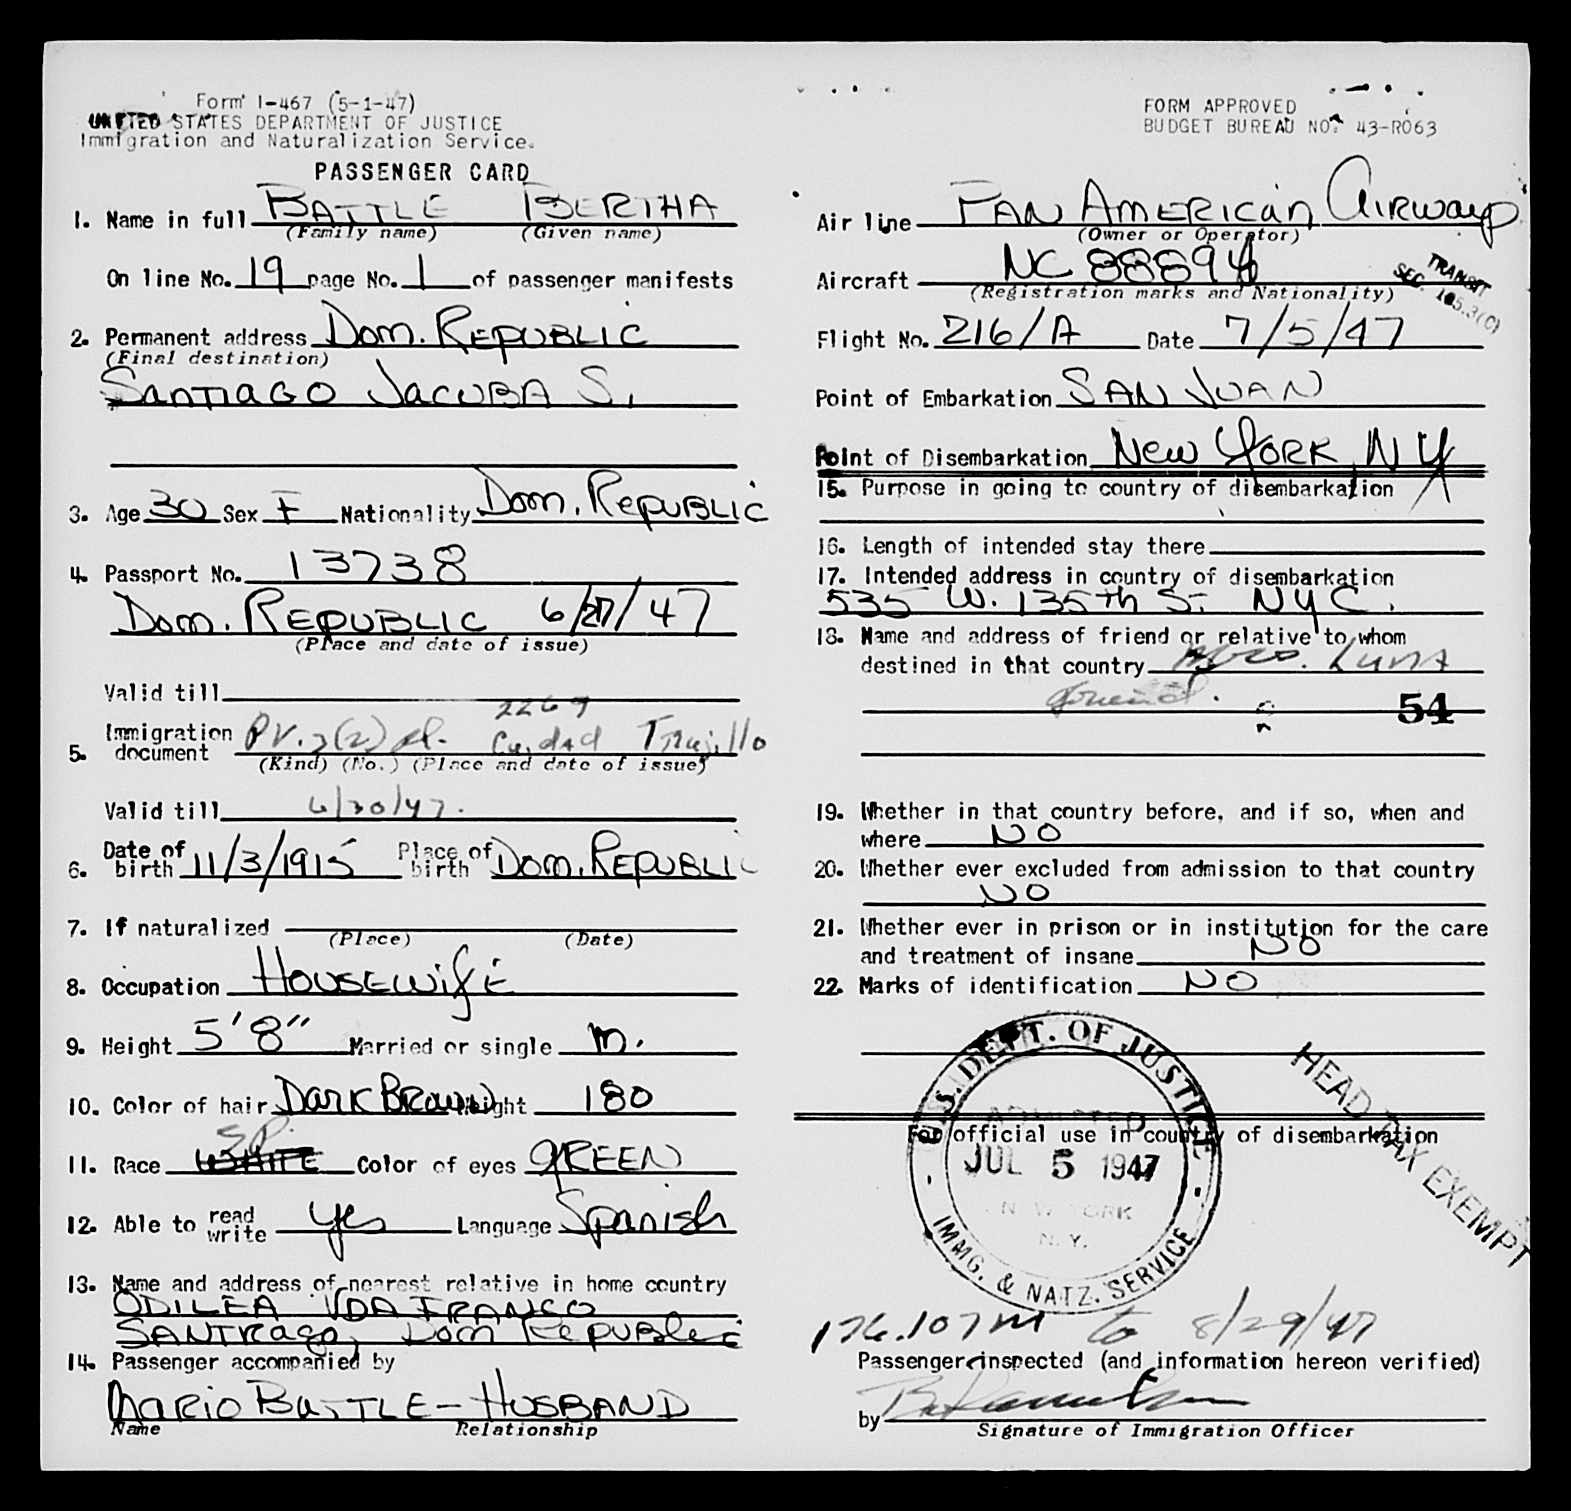 Form I-467 (5-1-47)
UNITED STATES DEPARTMENT OF JUSTICE
Immigration and Naturalization Service.
PASSENGER CARD
1. Name in full BATTLE BERTHA
(Family name) (Given name)
On line No. 19 page No. 1 of passenger manifests
2. Permanent address Dom. REPUBLIC
(Final destination)
SANTIAGO JACUBA S.
3. Age 30 Sex F Nationality Dom. REPUBLIC
4. Passport No. 13738
Dom. REPUBLIC 6/27/47
(Place and date of issue)
Valid till
2269
5. Immigration document P.V. 3(2) Cuidad Trujillo
(Kind) (No.) (Place and date of issue)
Valid till 6/30/47.
6. Date of birth 11/3/1915 Place of birth Dom. REPUBLIC
7. If naturalized
(Place) (Date)
8. Occupation HOUSEWIFE
9. Height 5'8" Married or single M.
10. Color of hair DARK BROWN Weight 180
SP.
11. Race WHITE Color of eyes GREEN
12. Able to read write Yes Language Spanish
13. Name and address of nearest relative in home country
ODILEA VDA FRANCO
SANTIAGO, Dom REPUBLIC
14. Passenger accompanied by
MARIO BATTLE - HUSBAND
Name Relationship
FORM APPROVED
BUDGET BUREAU NO. 43-R063
Air line PAN AMERICAN AIRWAYS
(Owner or Operator)
Aircraft NC 88894
(Registration marks and Nationality)
TRANSIT
SEC. 105.3(C)
Flight No. 216/A Date 7/5/47
Point of Embarkation SAN JUAN
Point of Disembarkation NEW YORK, NY
15. Purpose in going to country of disembarkation
16. Length of intended stay there
17. Intended address in country of disembarkation
535 W. 135th ST. NYC.
18. Name and address of friend or relative to whom
destined in that country Luna
friend.
54
19. Whether in that country before, and if so, when and
where NO
20. Whether ever excluded from admission to that country
NO
21. Whether ever in prison or in institution for the care
and treatment of insane NO
22. Marks of identification NO
For official use in country of disembarkation
U.S. DEPT. OF JUSTICE
ADMITTED
JUL 5 1947
NEW YORK
N.Y.
IMMG. & NATZ. SERVICE
HEAD TAX EXEMPT
176.107M to 8/29/47
Passenger inspected (and information hereon verified)
by
Signature of Immigration Officer